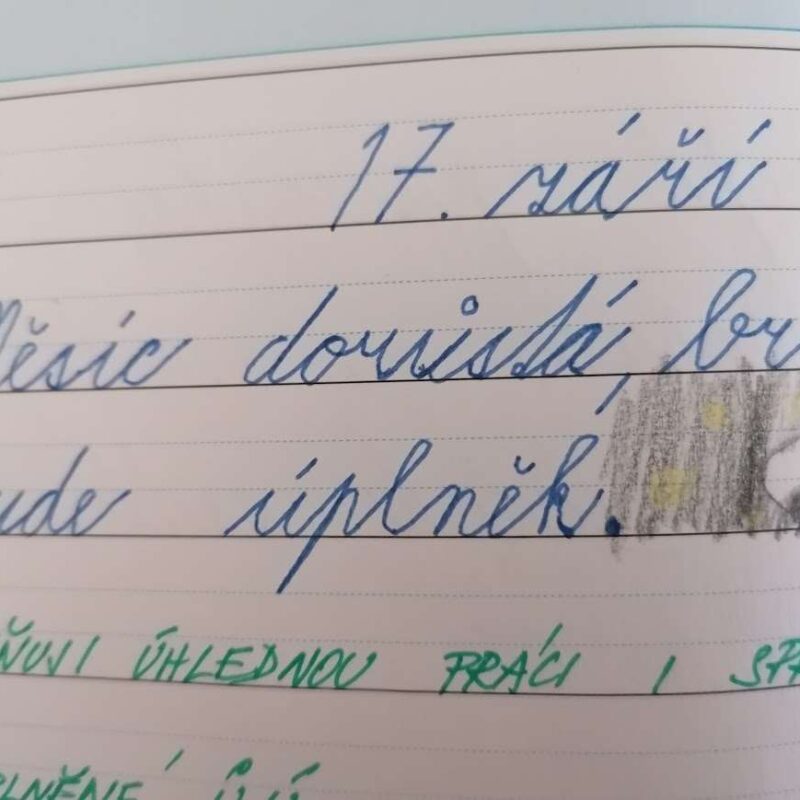 17. září
ěsíc dorůstá, br
ude úplněk.
ŇUJI ÚHLEDNOU PRÁCI I SPR
PLNĚNÉ Ů, Ú